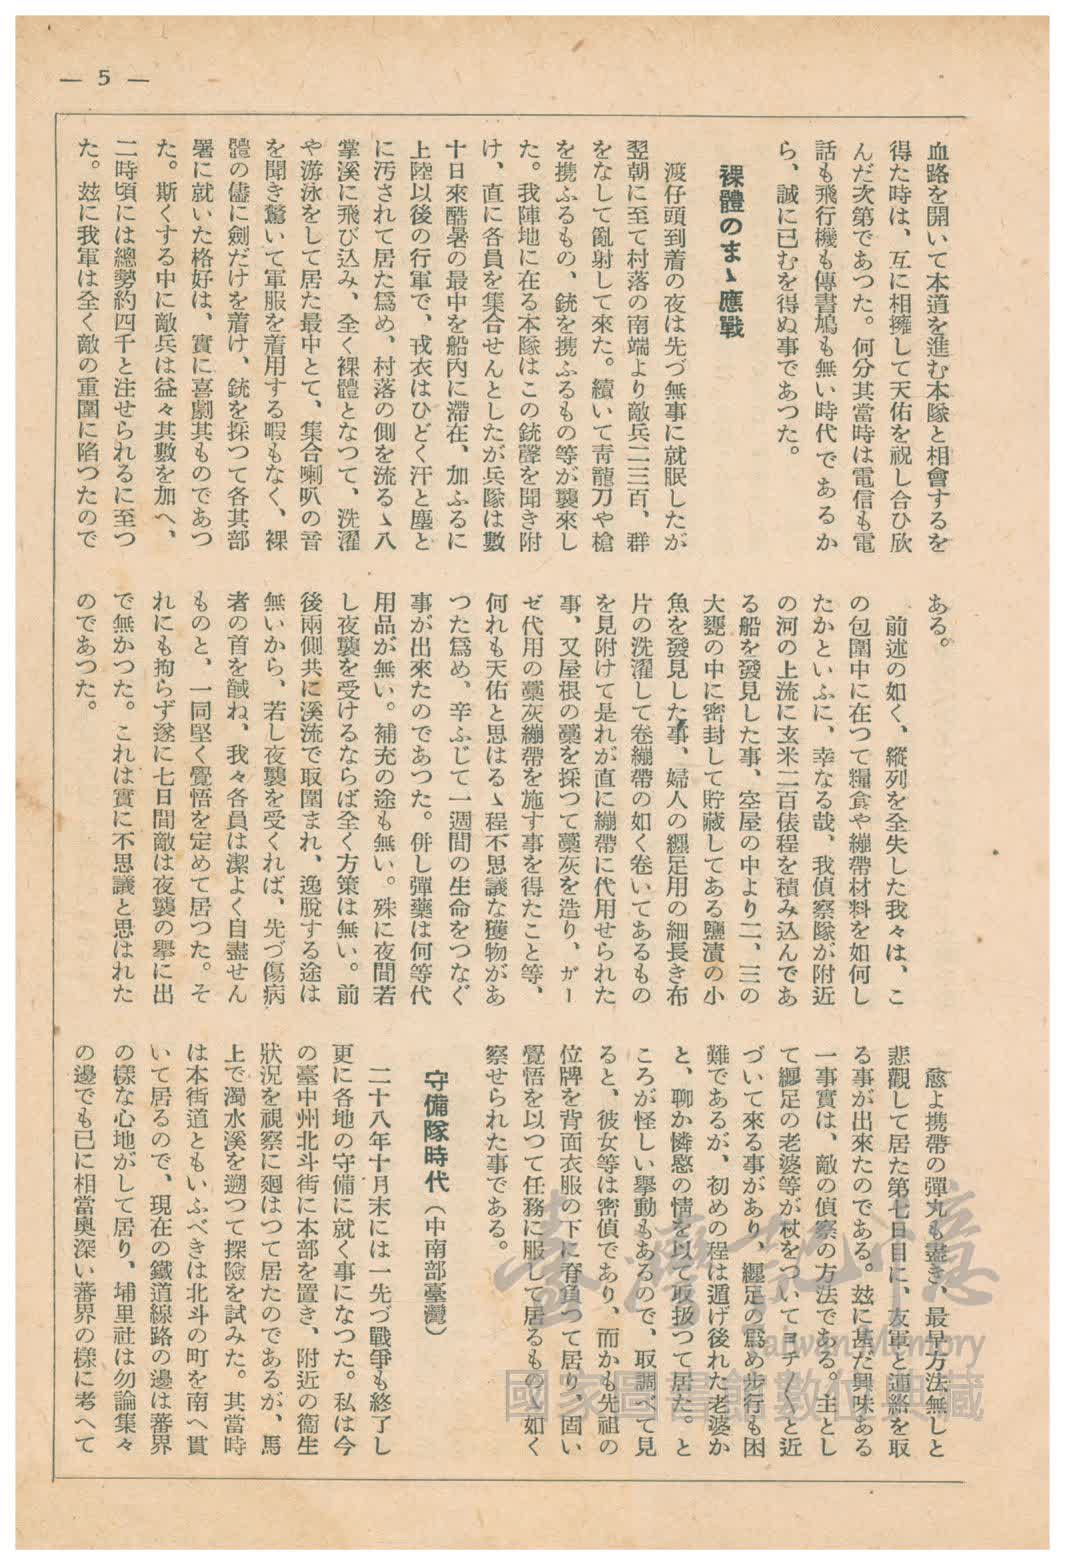 — 5 —
血路を開いて本道を進む本隊と相會するを
得た時は、互に相擁して天佑を祝し合ひ欣
んだ次第であつた。何分其當時は電信も電
話も飛行機も傳書鳩も無い時代であるか
ら、誠に已むを得ぬ事であつた。
裸體のまゝ應戰
渡仔頭到着の夜は先づ無事に就眠したが
翌朝に至て村落の南端より敵兵二三百、群
をなして亂射して來た。續いて靑龍刀や槍
を携ふるもの、銃を携ふるもの等が襲來し
た。我陣地に在る本隊はこの銃聲を聞き附
け、直に各員を集合せんとしたが兵隊は數
十日來酷暑の最中を船內に滯在、加ふるに
上陸以後の行軍で、戎衣はひどく汗と塵と
に汚されて居た爲め、村落の側を流るゝ八
掌溪に飛び込み、全く裸體となつて、洗濯
や游泳をして居た最中とて、集合喇叭の音
を聞き驚いて軍服を着用する暇もなく、裸
體の儘に劍だけを着け、銃を採つて各其部
署に就いた格好は、實に喜劇其ものであつ
た。斯くする中に敵兵は益々其數を加へ、
二時頃には總勢約四千と注せられるに至つ
た。玆に我軍は全く敵の重圍に陷つたので
ある。
前述の如く、縱列を全失した我々は、こ
の包圍中に在つて糧食や繃帶材料を如何し
たかといふに、幸なる哉、我偵察隊が附近
の河の上流に玄米二百俵程を積み込んであ
る船を發見した事、空屋の中より二、三の
大甕の中に密封して貯藏してある鹽漬の小
魚を發見した事、婦人の纏足用の細長き布
片の洗濯して卷繃帶の如く卷いてあるもの
を見附けて是れが直に繃帶に代用せられた
事、又屋根の藁を採つて藁灰を造り、ガー
ゼ代用の藁灰繃帶を施す事を得たこと等、
何れも天佑と思はるゝ程不思議な獲物があ
つた爲め、辛ふじて一週間の生命をつなぐ
事が出來たのであつた。併し彈藥は何等代
用品が無い。補充の途も無い。殊に夜間若
し夜襲を受けるならば全く方策は無い。前
後兩側共に溪流で取圍まれ、逸脫する途は
無いから、若し夜襲を受くれば、先づ傷病
者の首を馘ね、我々各員は潔よく自盡せん
ものと、一同堅く覺悟を定めて居つた。そ
れにも拘らず遂に七日間敵は夜襲の擧に出
で無かつた。これは實に不思議と思はれた
のであつた。
愈よ携帶の彈丸も盡き、最早方法無しと
悲觀して居た第七日目に、友軍と連絡を取
る事が出來たのである。玆に甚だ興味ある
一事實は、敵の偵察の方法である。主とし
て纏足の老婆等が杖をついてヨチ〱と近
づいて來る事があり、纏足の爲め步行も困
難であるが、初めの程は遁げ後れた老婆か
と、聊か憐愍の情を以て取扱つて居た。と
ころが怪しい擧動もあるので、取調べて見
ると、彼女等は密偵であり、而かも先祖の
位牌を背面衣服の下に脊負つて居り、固い
覺悟を以つて任務に服して居るものゝ如く
察せられた事である。
守備隊時代（中南部臺灣）
二十八年十月末には一先づ戰爭も終了し
更に各地の守備に就く事になつた。私は今
の臺中州北斗街に本部を置き、附近の衞生
狀況を視察に廻はつて居たのであるが、馬
上で濁水溪を遡つて探險を試みた。其當時
は本街道ともいふべきは北斗の町を南へ貫
いて居るので、現在の鐵道線路の邊は蕃界
の樣な心地がして居り、埔里社は勿論集々
の邊でも已に相當奧深い蕃界の樣に考へて
臺灣記憶
Taiwan Memory
國家圖書館數位典藏